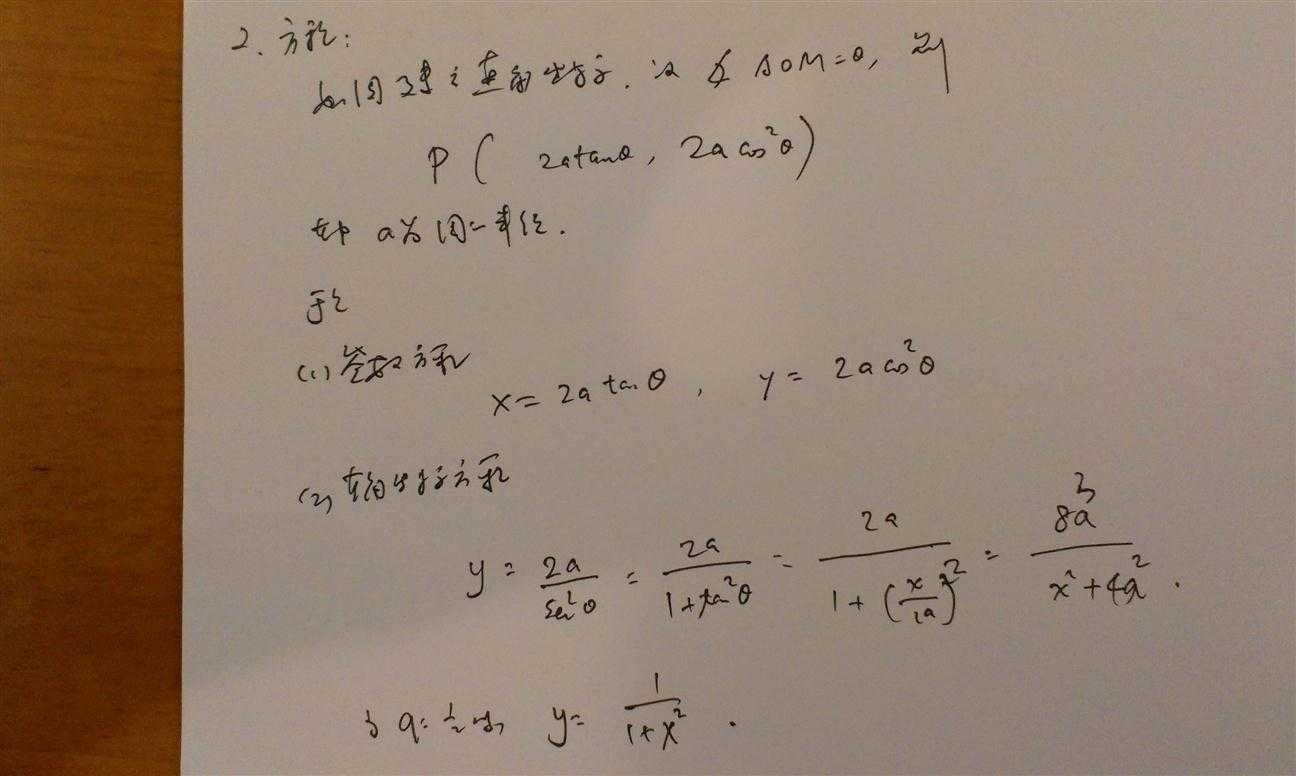 2、方程:
如图建立直角坐标系. 设∠AOM=θ, 则
P ( 2a tanθ, 2a cos²θ )
其中 a为圆之半径.
于是
(1) 参数方程
x = 2a tan θ , y = 2a cos²θ
(2) 直角坐标方程
y = 2a/sec²θ = 2a/(1+tan²θ) = 2a/(1+(x/2a)²) = 8a³/(x²+4a²) .
当 a=1/2时, y= 1/(1+x²) .